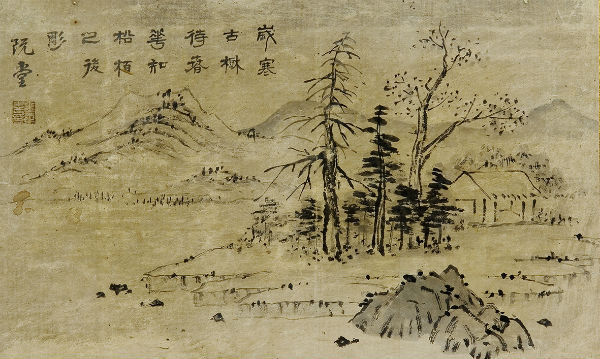 歲寒
古
待
知
松栢
之後
彫
阮堂